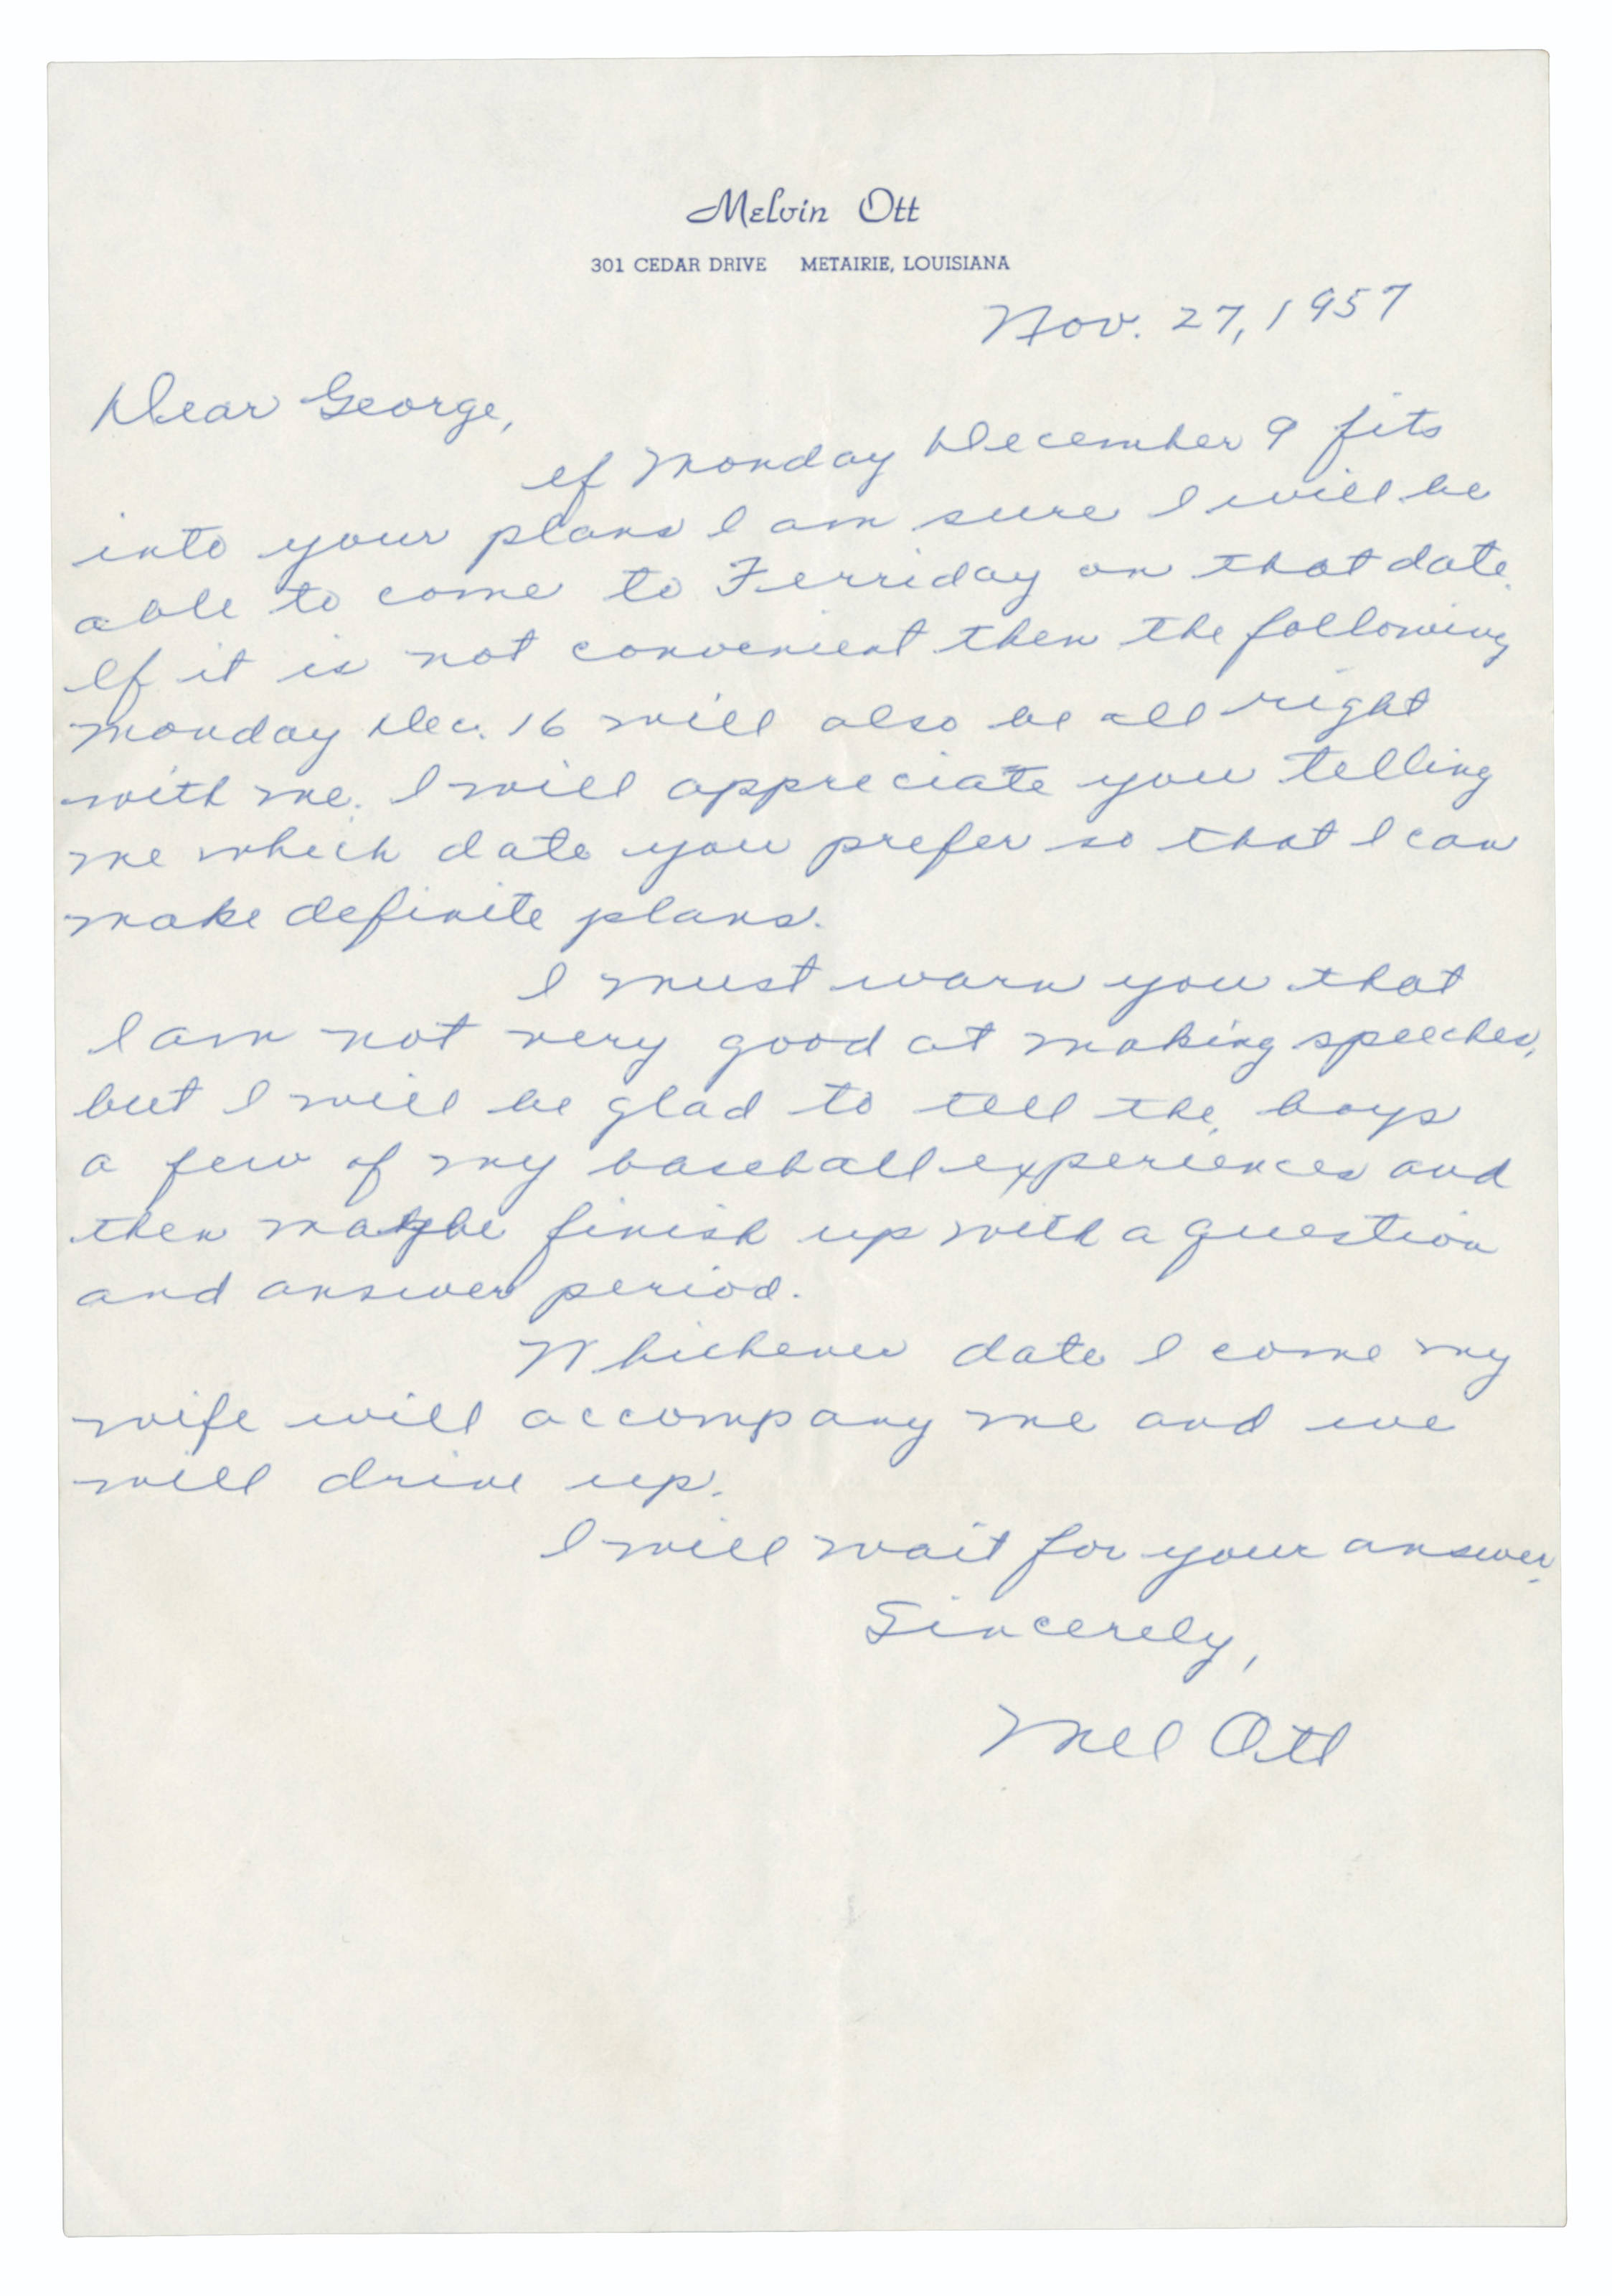 Melvin Ott
301 CEDAR DRIVE METAIRIE, LOUISIANA
Nov. 27, 1957
Dear George,
If Monday December 9 fits
into your plans I am sure I will be
able to come to Ferriday on that date.
If it is not convenient then the following
Monday Dec. 16 will also be all right
with me. I will appreciate you telling
me which date you prefer so that I can
make definite plans.
I must warn you that
I am not very good at making speeches,
but I will be glad to tell the boys
a few of my baseball experiences and
then maybe finish up with a question
and answer period.
Whichever date I come my
wife will accompany me and we
will drive up.
I will wait for your answer.
Sincerely,
Mel Ott